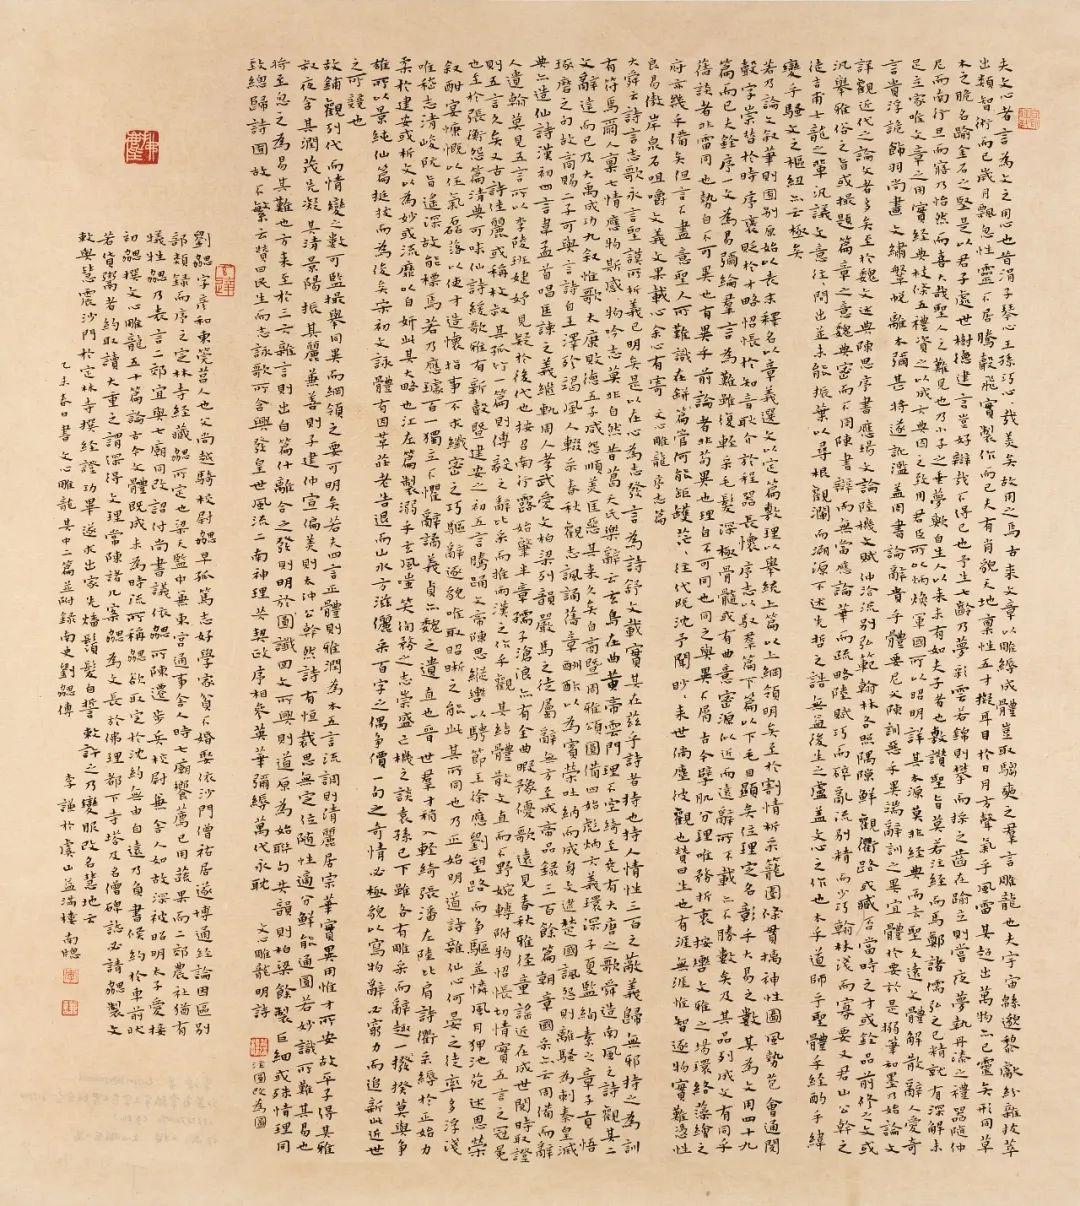 夫文心者言為文之用心也昔涓子琴心王孫巧心哉美矣故用之焉古來文章以雕縟成體豈取騶奭之羣言雕龍也夫宇宙緜邈黎獻紛雜拔萃
出類智術而已歲月飄忽性靈不居騰聲飛實製作而已夫有肖貌天地稟性五才擬耳目於日月方聲氣乎風雷其超出萬物亦已靈矣形同草
木之脆名踰金石之堅是以君子處世樹德建言豈好辯哉不得已也予生七齡乃夢彩雲若錦則攀而採之齒在踰立則嘗夜夢執丹漆之禮器隨仲
尼而南行旦而寤乃怡然而喜大哉聖人之難見也乃小子之垂夢歟自生人以來未有如夫子者也敷讚聖旨莫若注經而馬鄭諸儒弘之已精就有深解未
足立家唯文章之用實經典枝條五禮資之以成六典因之致用君臣所以炳煥軍國所以昭明詳其本源莫非經典而去聖久遠文體解散辭人愛奇
言貴浮詭飾羽尚畫文繡鞶帨離本彌甚將遂訛濫蓋周書論辭貴乎體要尼父陳訓惡乎異端辭訓之異宜體於要於是搦筆和墨乃始論文
詳觀近代之論文者多矣至於魏文述典陳思序書應瑒文論陸機文賦仲洽流別弘範翰林各照隅隙鮮觀衢路或臧否當時之才或銓品前修之文或
汎舉雅俗之旨或撮題篇章之意魏典密而不周陳書辯而無當應論華而疏略陸賦巧而碎亂流別精而少巧翰林淺而寡要又君山公幹之
徒吉甫士龍之輩汎議文意往往間出並未能振葉以尋根觀瀾而溯源不述先哲之誥無益後生之慮蓋文心之作也本乎道師乎聖體乎經酌乎緯
變乎騷文之樞紐亦云極矣
若乃論文敘筆則囿別原始以表末釋名以章義選文以定篇敷理以舉統上篇以上綱領明矣至於割情析采籠圈條貫摛神性圖風勢苞會通閱
聲字崇替於時序褒貶於才略怊悵於知音耿介於程器長懷序志以馭羣篇下篇以下毛目顯矣位理定名彰乎大易之數其為文用四十九
篇而已夫銓序一文為易彌綸羣言為難雖復輕采毛髮深極骨髓或有曲意密源似近而遠辭所不載亦不勝數矣及其品列成文有同乎
舊談者非雷同也勢自不可異也有異乎前論者非苟異也理自不可同也同之與異不屑古今擘肌分理唯務折衷按轡文雅之場環絡藻繪之
府亦幾乎備矣但言不盡意聖人所難識在缾管何能矩矱茫茫往代既沈予聞眇眇來世倘塵彼觀也贊曰生也有涯無涯惟智逐物實難憑性
良易傲岸泉石咀嚼文義文果載心余心有寄 文心雕龍序志篇
大舜云詩言志歌永言聖謨所析義已明矣是以在心為志發言為詩舒文載實其在茲乎詩者持也持人情性三百之蔽義歸無邪持之為訓
有符焉爾人稟七情應物斯感感物吟志莫非自然昔葛天氏樂辭云玄鳥在曲黃帝雲門理不空綺至堯有大唐之歌舜造南風之詩觀其二
文辭達而已及大禹成功九敘惟歌太康敗德五子咸怨順美匡惡其來久矣自商暨周雅頌圓備四始彪炳六義環深子夏監絢素之章子貢悟
琢磨之句故商賜二子可與言詩自王澤殄竭風人輟采春秋觀志諷誦舊章酬酢以為賓榮吐納而成身文逮楚國諷怨則離騷為刺秦皇滅
典亦造仙詩漢初四言韋孟首唱匡諫之義繼軌周人孝武愛文柏梁列韻嚴馬之徒屬辭無方至成帝品錄三百餘篇朝章國采亦云周備而辭
人遺翰莫見五言所以李陵班婕妤見疑於後代也按召南行露始肇半章孺子滄浪亦有全曲暇豫優歌遠見春秋雅徑童謠近在成世閱時取證
則五言久矣又古詩佳麗或稱枚叔其孤竹一篇則傅毅之辭比采而推兩漢之作乎觀其結體散文直而不野婉轉附物怊悵切情實五言之冠冕
也至於張衡怨篇清典可味仙詩緩歌雅有新聲暨建安之初五言騰踊文帝陳思縱轡以騁節王徐應劉望路而爭驅並憐風月狎池苑述恩榮
敘酣宴慷慨以任氣磊落以使才造懷指事不求纖密之巧驅辭逐貌唯取昭晰之能此其所同也乃正始明道詩雜仙心何晏之徒率多浮淺
唯嵇志清峻阮旨遙深故能標焉若乃應璩百一獨立不懼辭譎義貞亦魏之遺直也晉世羣才稍入輕綺張潘左陸比肩詩衢采縟於正始力
柔於建安或析文以為妙或流靡以自妍此其大略也江左篇製溺乎玄風嗤笑徇務之志崇盛亡機之談袁孫已下雖各有雕采而辭趣一揆莫與爭
雄所以景純仙篇挺拔而為俊矣宋初文詠體有因革莊老告退而山水方滋儷采百字之偶爭價一句之奇情必極貌以寫物辭必窮力而追新此近世
之所競也
故鋪觀列代而情變之數可監撮舉同異而綱領之要可明矣若夫四言正體則雅潤為本五言流調則清麗居宗華實異用惟才所安故平子得其雅
叔夜含其潤茂先凝其清景陽振其麗兼善則子建仲宣偏美則太沖公幹然詩有恒裁思無定位隨性適分鮮能通圓若妙識所難其易也
將至忽之為易其難也方來至於三六雜言則出自篇什離合之發則明於圖讖回文所興則道原為始聯句共韻則柏梁餘製巨細或殊情理同
致總歸詩囿故不繁云贊曰民生而志詠歌所含興發皇世風流二南神理共契政序相參英華彌縟萬代永耽 文心雕龍明詩 注圖改為圓
劉勰字彥和東莞莒人也父尚越騎校尉勰早孤篤志好學家貧不婚娶依沙門僧祐居遂博通經論因區別
部類錄而序之定林寺經藏勰所定也梁天監中兼東宮通事舍人時七廟饗薦已用蔬果而二郊農社猶有
犧牲勰乃表言二郊宜與七廟同改詔付尚書議依勰所陳遷步兵校尉兼舍人如故深被昭明太子愛接
初勰撰文心雕龍五十篇論古今文體既成未為時流所稱勰欲取定於沈約無由自達乃負書候約於車前狀
若貨鬻者約取讀大重之謂深得文理常陳諸几案勰為文長於佛理都下寺塔及名僧碑誌必請勰製文
敕與慧震沙門於定林寺撰經證功畢遂求出家先燔鬚髮自誓敕許之乃變服改名慧地云
乙未春日書文心雕龍其中二篇並附錄南史劉勰傳 李謹於虞山益滿樓南牕